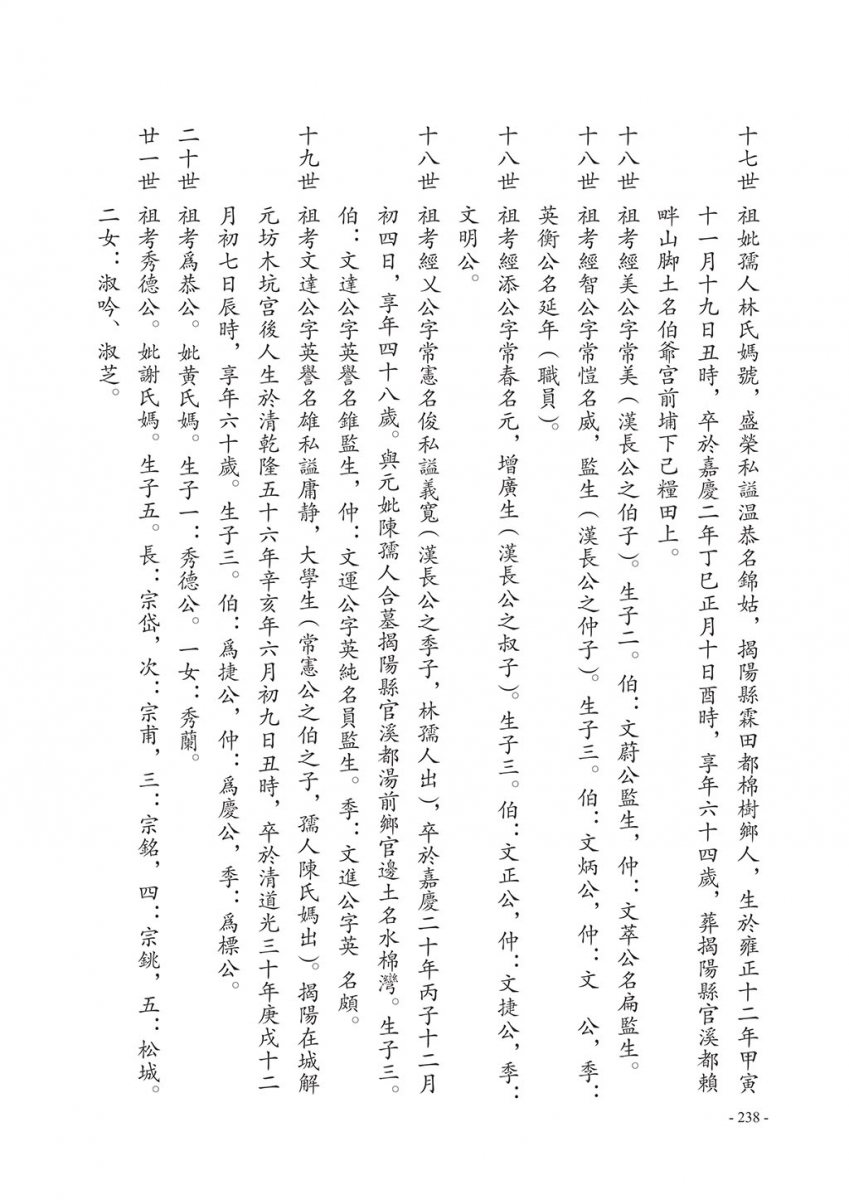 十七世　祖妣孺人林氏媽號，盛榮私謚温恭名錦姑，揭陽縣霖田都棉樹鄉人，生於雍正十二年甲寅
十一月十九日丑時，卒於嘉慶二年丁巳正月十日酉時，享年六十四歲，葬揭陽縣官溪都賴
畔山脚土名伯爺宫前埔下己糧田上。
十八世　祖考經美公字常美（漢長公之伯子）。生子二。伯：文蔚公監生，仲：文萃公名扁監生。
十八世　祖考經智公字常愷名威，監生（漢長公之仲子）。生子三。伯：文炳公，仲：文　公，季：
英衡公名延年（職員）。
十八世　祖考經添公字常春名元，增廣生（漢長公之叔子）。生子三。伯：文正公，仲：文捷公，季：
文明公。
十八世　祖考經乂公字常憲名俊私謚義寬（漢長公之季子，林孺人出），卒於嘉慶二十年丙子十二月
初四日，享年四十八歲。與元妣陳孺人合墓揭陽縣官溪都湯前鄉官邊土名水棉灣。生子三。
伯：文達公字英譽名錐監生，仲：文運公字英純名員監生。季：文進公字英　名頗。
十九世　祖考文達公字英譽名雄私謚庸静，大學生（常憲公之伯之子，孺人陳氏媽出）。揭陽在城解
元坊木坑宫後人生於清乾隆五十六年辛亥年六月初九日丑時，卒於清道光三十年庚戌十二
月初七日辰時，享年六十歲。生子三。伯：爲捷公，仲：爲慶公，季：爲標公。
二十世　祖考爲恭公。妣黄氏媽。生子一：秀德公。一女：秀蘭。
廿一世　祖考秀德公。妣謝氏媽。生子五。長：宗岱，次：宗甫，三：宗銘，四：宗銚，五：松城。
二女：淑吟、淑芝。
- 238 -